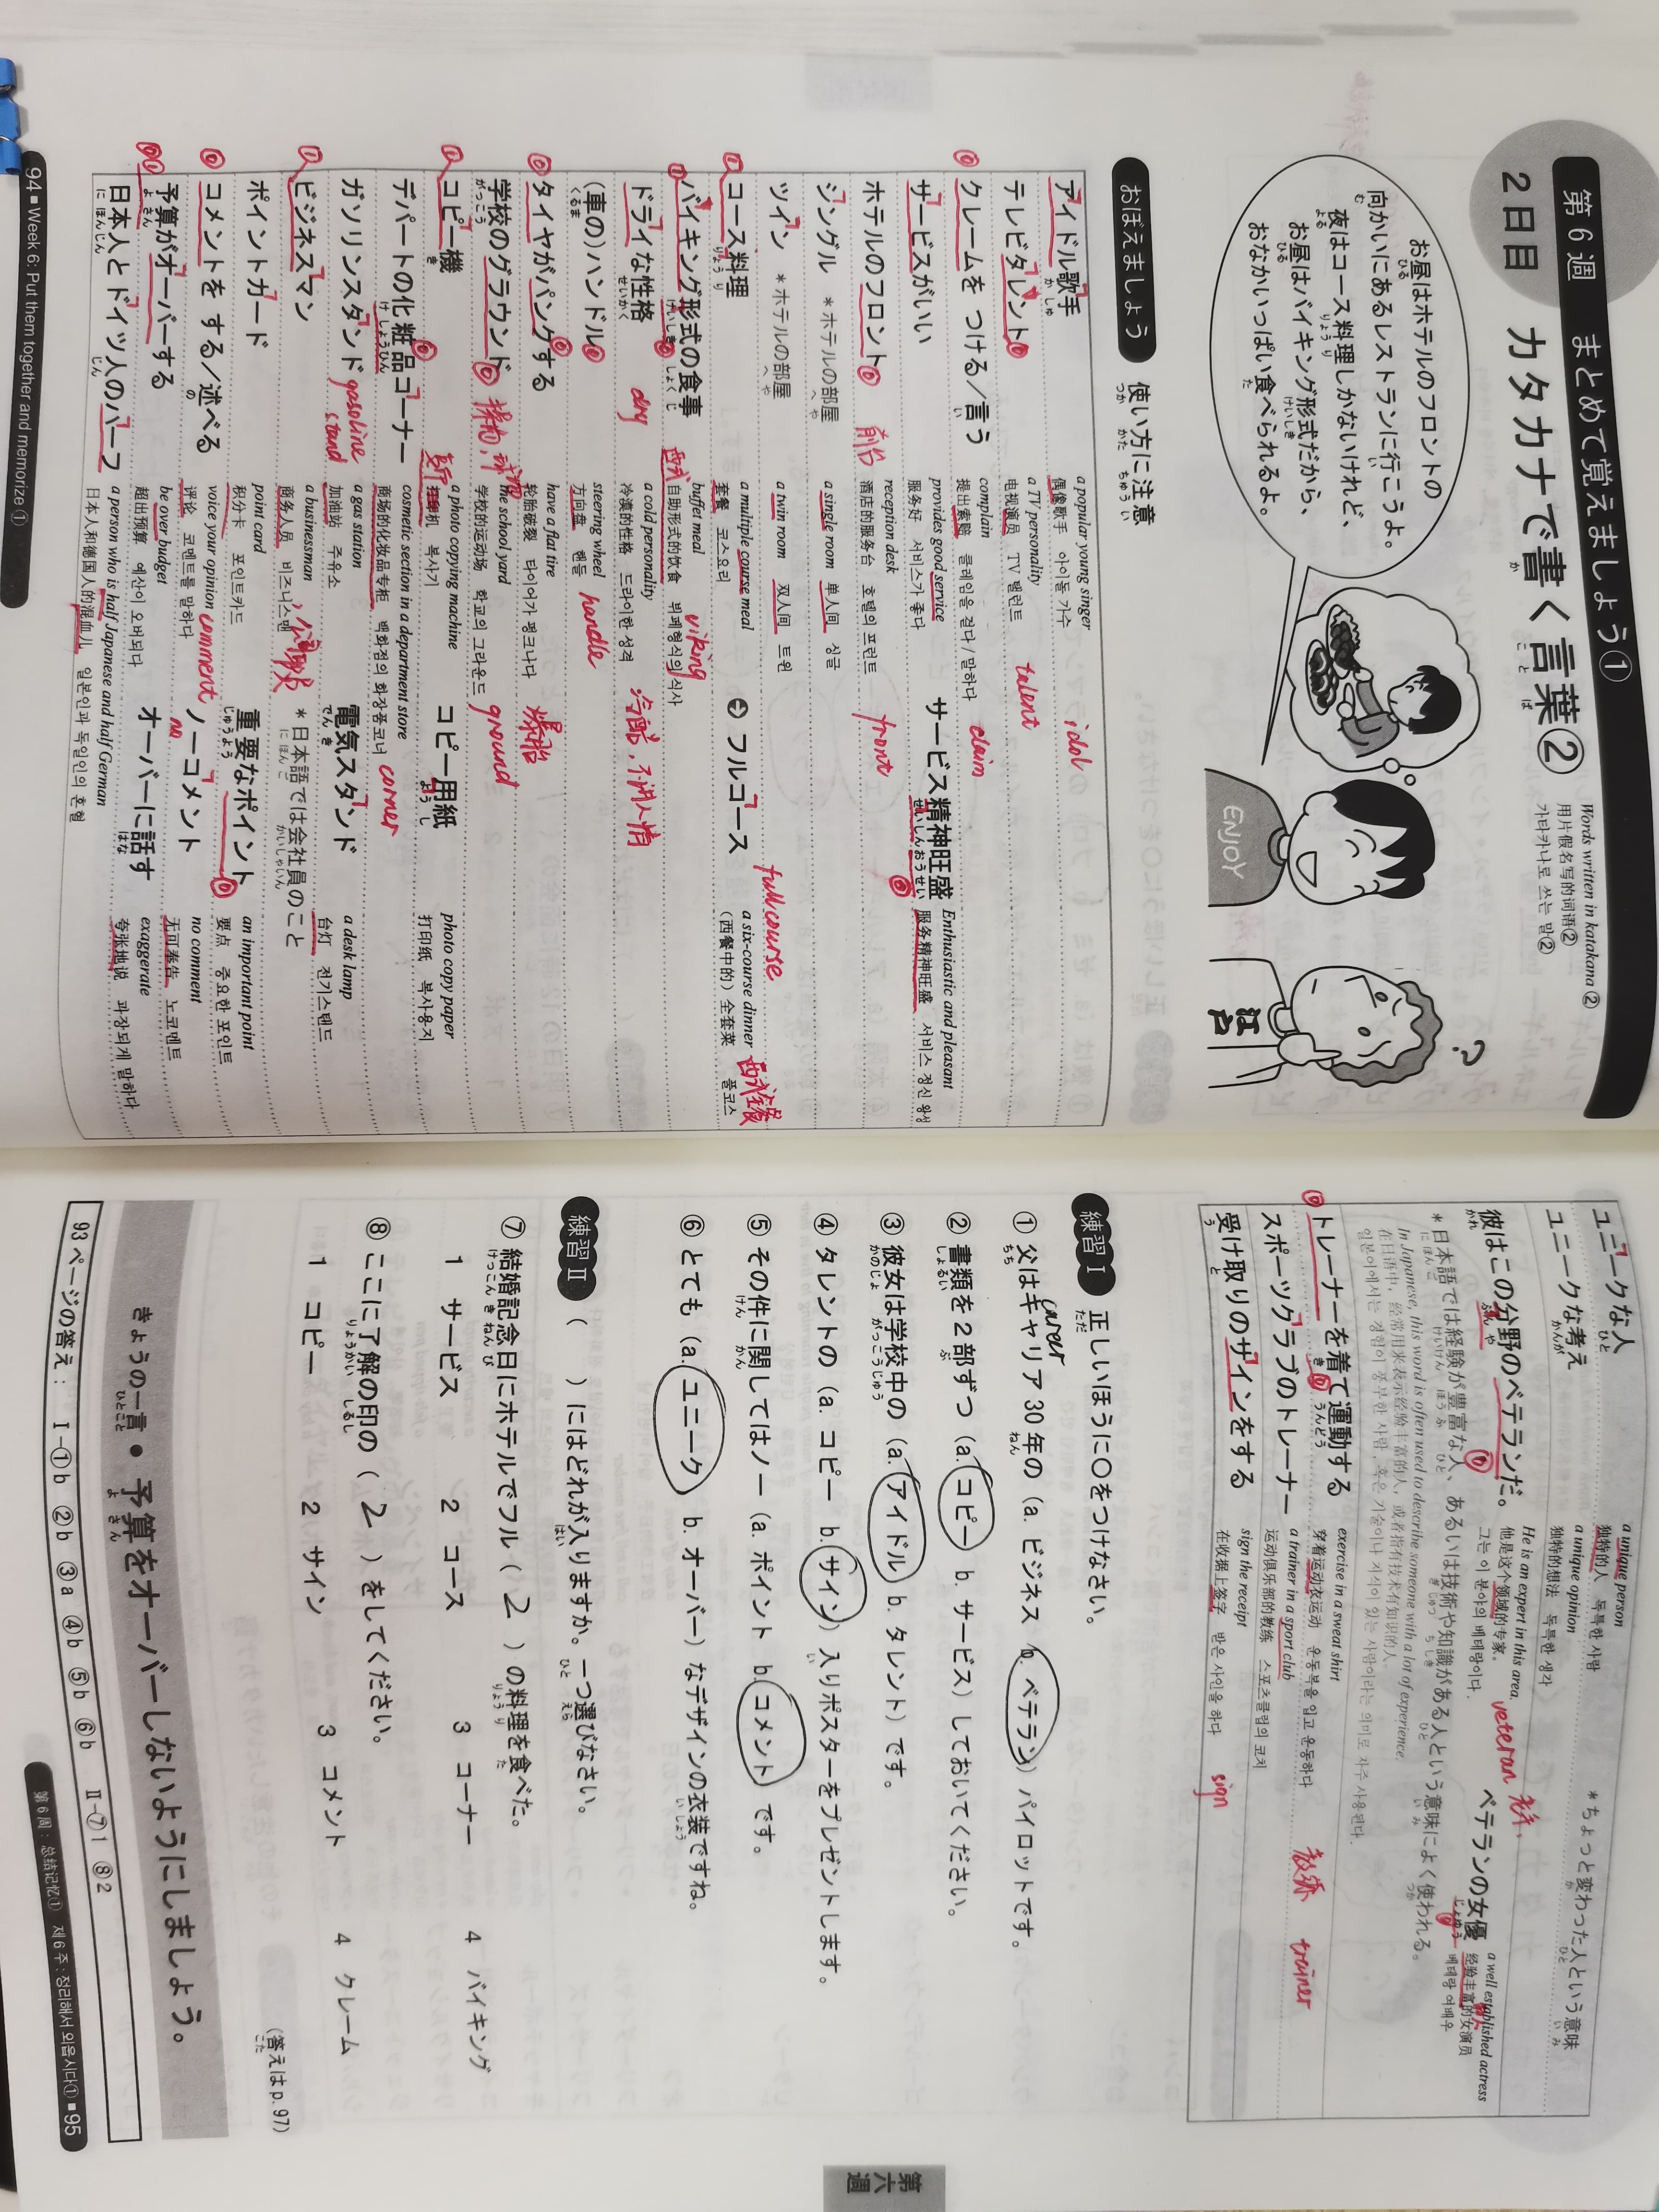 第6週 まとめて覚えましょう①
2日目 カタカナで書く言葉②
Words written in katakana ②
用片假名写的词语②
가타카나로 쓰는 말②
お昼はホテルのフロントの
向かいにあるレストランに行こうよ。
夜はコース料理しかないけれど、
お昼はバイキング形式だから、
おなかいっぱい食べられるよ。
ENJOY
江戸
?
おぼえましょう 使い方に注意
アイドル歌手 a popular young singer idol
偶像歌手 아이돌 가수
テレビタレント a TV personality talent
电视演员 TV 탤런트
クレームを つける/言う complain claim
提出索赔 클레임을 걸다/말하다
サービスがいい provides good service サービス精神旺盛 Enthusiastic and pleasant
服务好 서비스가 좋다 服务精神旺盛 서비스 정신 왕성
ホテルのフロント 前台 reception desk front
酒店的服务台 호텔의 프런트
シングル *ホテルの部屋 a single room
单人间 싱글
ツイン *ホテルの部屋 a twin room full course
双人间 트윈
コース料理 a multiple course meal ➔ フルコース a six-course dinner
套餐 코스요리 (西餐中的)全套菜 풀코스
バイキング形式の食事 buffet meal viking
自助形式的饮食 뷔페형식의 식사
ドライな性格 dry a cold personality 冷酷,不讲人情
冷漠的性格 드라이한 성격
(車の)ハンドル steering wheel handle
方向盘 핸들
タイヤがパンクする have a flat tire 爆胎
轮胎破裂 타이어가 펑크나다
学校のグラウンド the school yard ground
学校的运动场 학교의 그라운드
コピー機 a photo copying machine コピー用紙 photo copy paper
복사기 打印纸 복사용지
デパートの化粧品コーナー cosmetic section in a department store corner
商场的化妆品专柜 백화점의 화장품코너
ガソリンスタンド gasoline stand a gas station 電気スタンド a desk lamp
加油站 주유소 台灯 전기스탠드
ビジネスマン a businessman *日本語では会社員のこと
商务人员 비즈니스맨
ポイントカード point card 重要なポイント an important point
积分卡 포인트카드 要点 중요한 포인트
コメントを する/述べる voice your opinion comment ノーコメント no comment
评论 코멘트를 말하다 no 无可奉告 노코멘트
予算がオーバーする be over budget オーバーに話す exaggerate
超出预算 예산이 오버되다 夸张地说 과장되게 말하다
日本人とドイツ人のハーフ a person who is half Japanese and half German
日本人和德国人的混血儿 일본인과 독일인의 혼혈
94 ■ Week 6: Put them together and memorize ①
ユニークな人 a unique person *ちょっと変わった人という意味
独特的人 독특한 사람
ユニークな考え a unique opinion
独特的想法 독특한 생각
彼はこの分野のベテランだ。 He is an expert in this area. veteran ベテランの女優 a well established actress
他是这个领域的专家。 经验丰富的女演员
그는 이 분야의 베테랑이다. 베테랑 여배우
*日本語では経験が豊富な人、あるいは技術や知識がある人という意味によく使われる。
In Japanese, this word is often used to describe someone with a lot of experience.
在日语中,经常用来表示经验丰富的人,或者指有技术有知识的人。
일본어에서는 경험이 풍부한 사람, 혹은 기술이나 지식이 있는 사람이라는 의미로 자주 사용된다.
トレーナーを着て運動する exercise in a sweat shirt
穿着运动衣运动 운동복을 입고 운동하다
スポーツクラブのトレーナー a trainer in a sport club 教练 trainer
运动俱乐部的教练 스포츠클럽의 코치
受け取りのサインをする sign the receipt sign
在收据上签字 받은 사인을 하다
練習Ⅰ 正しいほうに○をつけなさい。
career
① 父はキャリア30年の(a. ビジネス b. ベテラン)パイロットです。
② 書類を2部ずつ(a. コピー b. サービス)しておいてください。
③ 彼女は学校中の(a. アイドル b. タレント)です。
④ タレントの(a. コピー b. サイン)入りポスターをプレゼントします。
⑤ その件に関してはノー(a. ポイント b. コメント)です。
⑥ とても(a. ユニーク b. オーバー)なデザインの衣装ですね。
練習Ⅱ ( )にはどれが入りますか。一つ選びなさい。
⑦ 結婚記念日にホテルでフル( 2 )の料理を食べた。
1 サービス 2 コース 3 コーナー 4 バイキング
⑧ ここに了解の印の( 2 )をしてください。
1 コピー 2 サイン 3 コメント 4 クレーム
(答えはp.97)
きょうの一言 ● 予算をオーバーしないようにしましょう。
93ページの答え: Ⅰ-①b ②b ③a ④b ⑤b ⑥b Ⅱ-⑦1 ⑧2
第6周:总结记忆① 제6주:정리해서 외웁시다① ■ 95
第六週